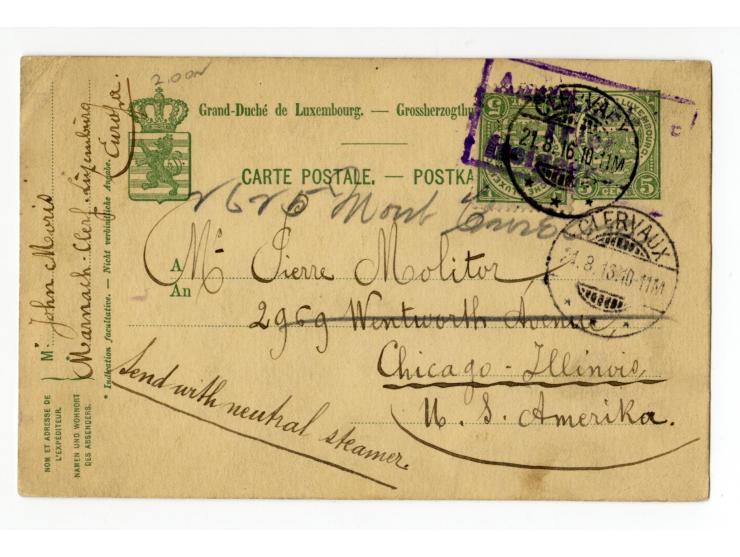 2.00N
Grand-Duché de Luxembourg. — Grossherzogthu
CARTE POSTALE. — POSTKA
21.8.16.10-11M
5
5
CLERVAUX
21.8.16.10-11M
2625 Mont
A
An
Mr Pierre Molitor
2969 Wentworth Avenue,
Chicago-Illinois,
U. S. Amerika.
Send with neutral steamer.
M. John Moris
Marnach-Clerf-Luxemburg
Europa.
* Indication facultative. — Nicht verbindliche Angabe.
NOM ET ADRESSE DE
L'EXPÉDITEUR.
NAMEN UND WOHNORT
DES ABSENDERS.